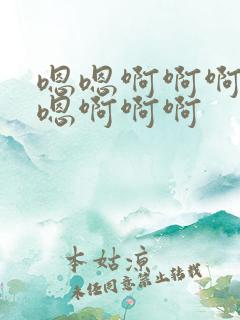 嗯嗯啊啊啊
嗯啊啊啊
本姑凉
未经同意禁止转载